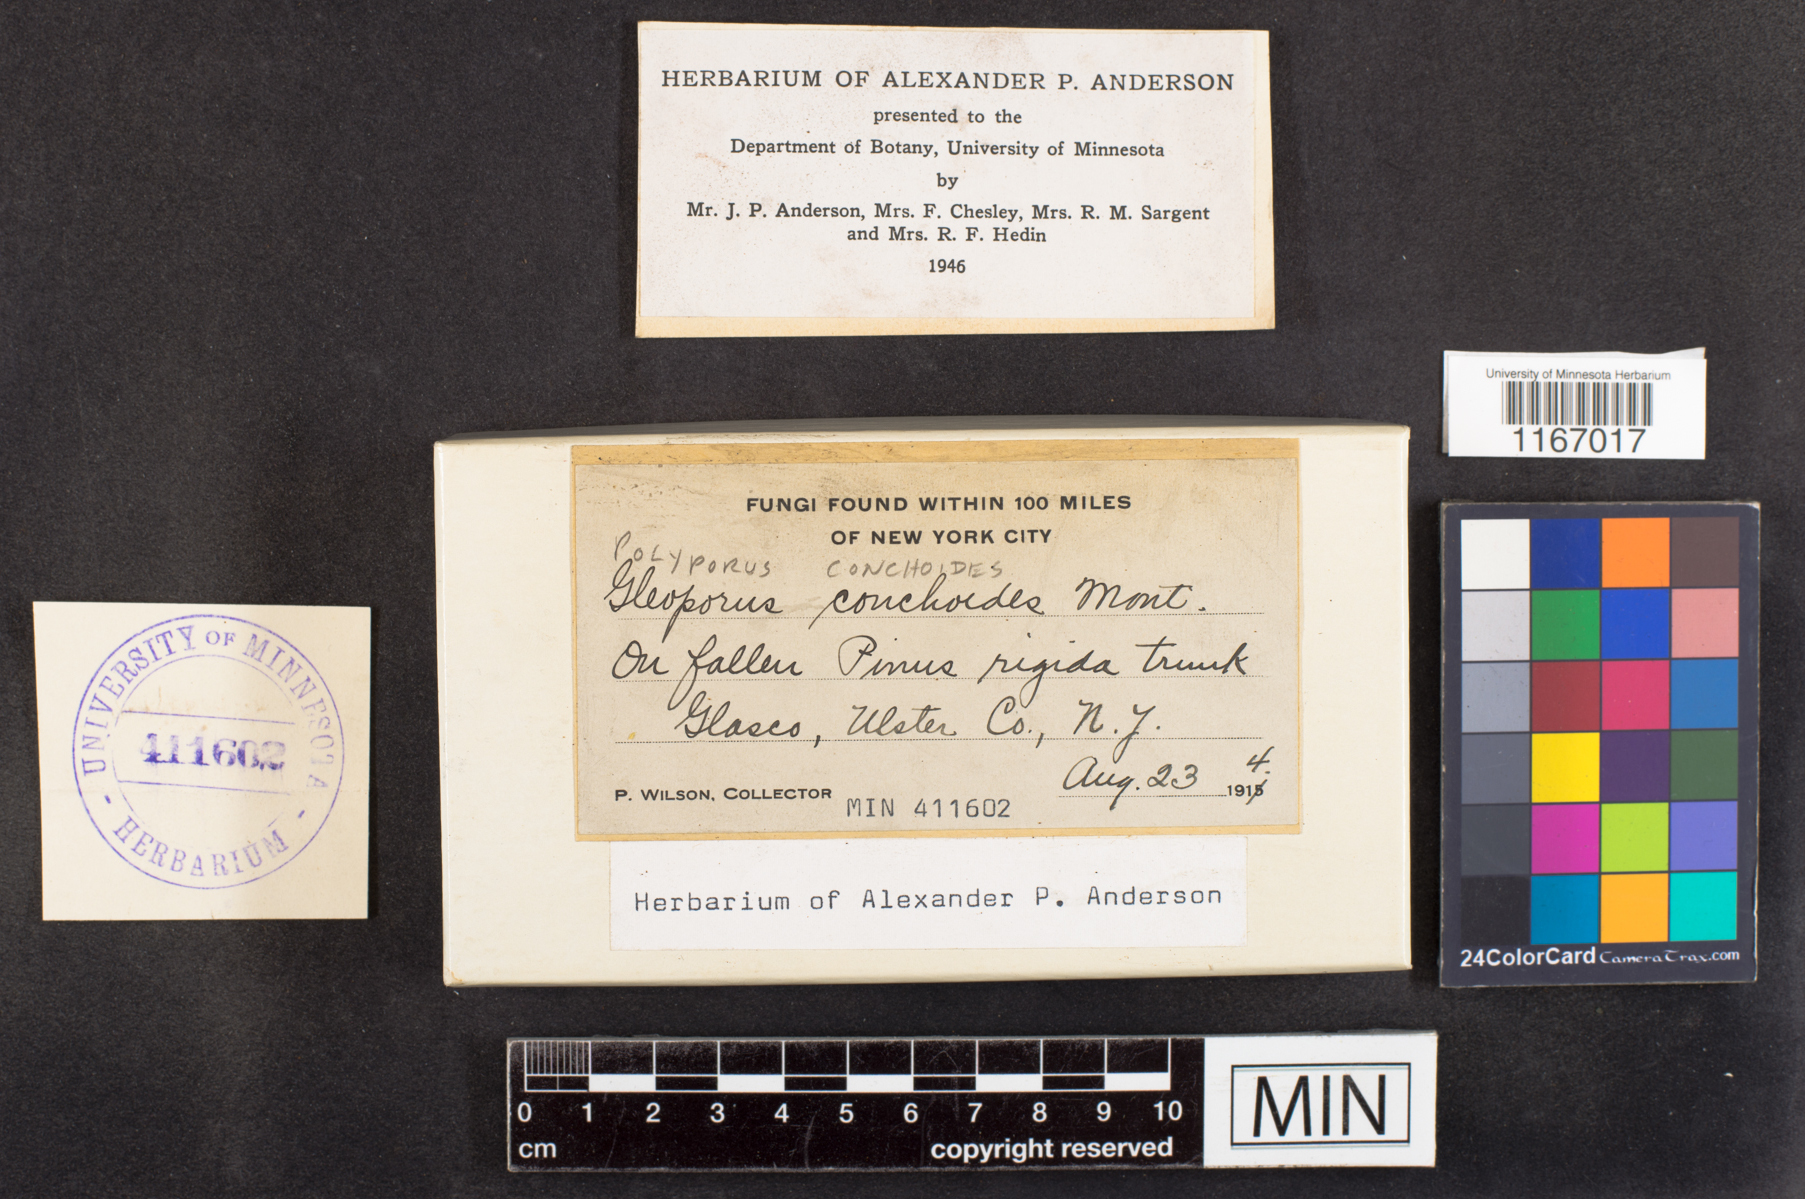 HERBARIUM OF ALEXANDER P. ANDERSON
presented to the
Department of Botany, University of Minnesota
by
Mr. J. P. Anderson, Mrs. F. Chesley, Mrs. R. M. Sargent
and Mrs. R. F. Hedin
1946
University of Minnesota Herbarium
1167017
FUNGI FOUND WITHIN 100 MILES
OF NEW YORK CITY
POLYPORUS CONCHOIDES
Gleoporus conchoides Mont.
On fallen Pinus rigida trunk
Glasco, Ulster Co., N.Y.
Aug. 23 1915 4.
P. WILSON, COLLECTOR
MIN 411602
Herbarium of Alexander P. Anderson
UNIVERSITY OF MINNESOTA
411602
- HERBARIUM -
24ColorCard CameraTrax.com
0 1 2 3 4 5 6 7 8 9 10
cm
copyright reserved
MIN